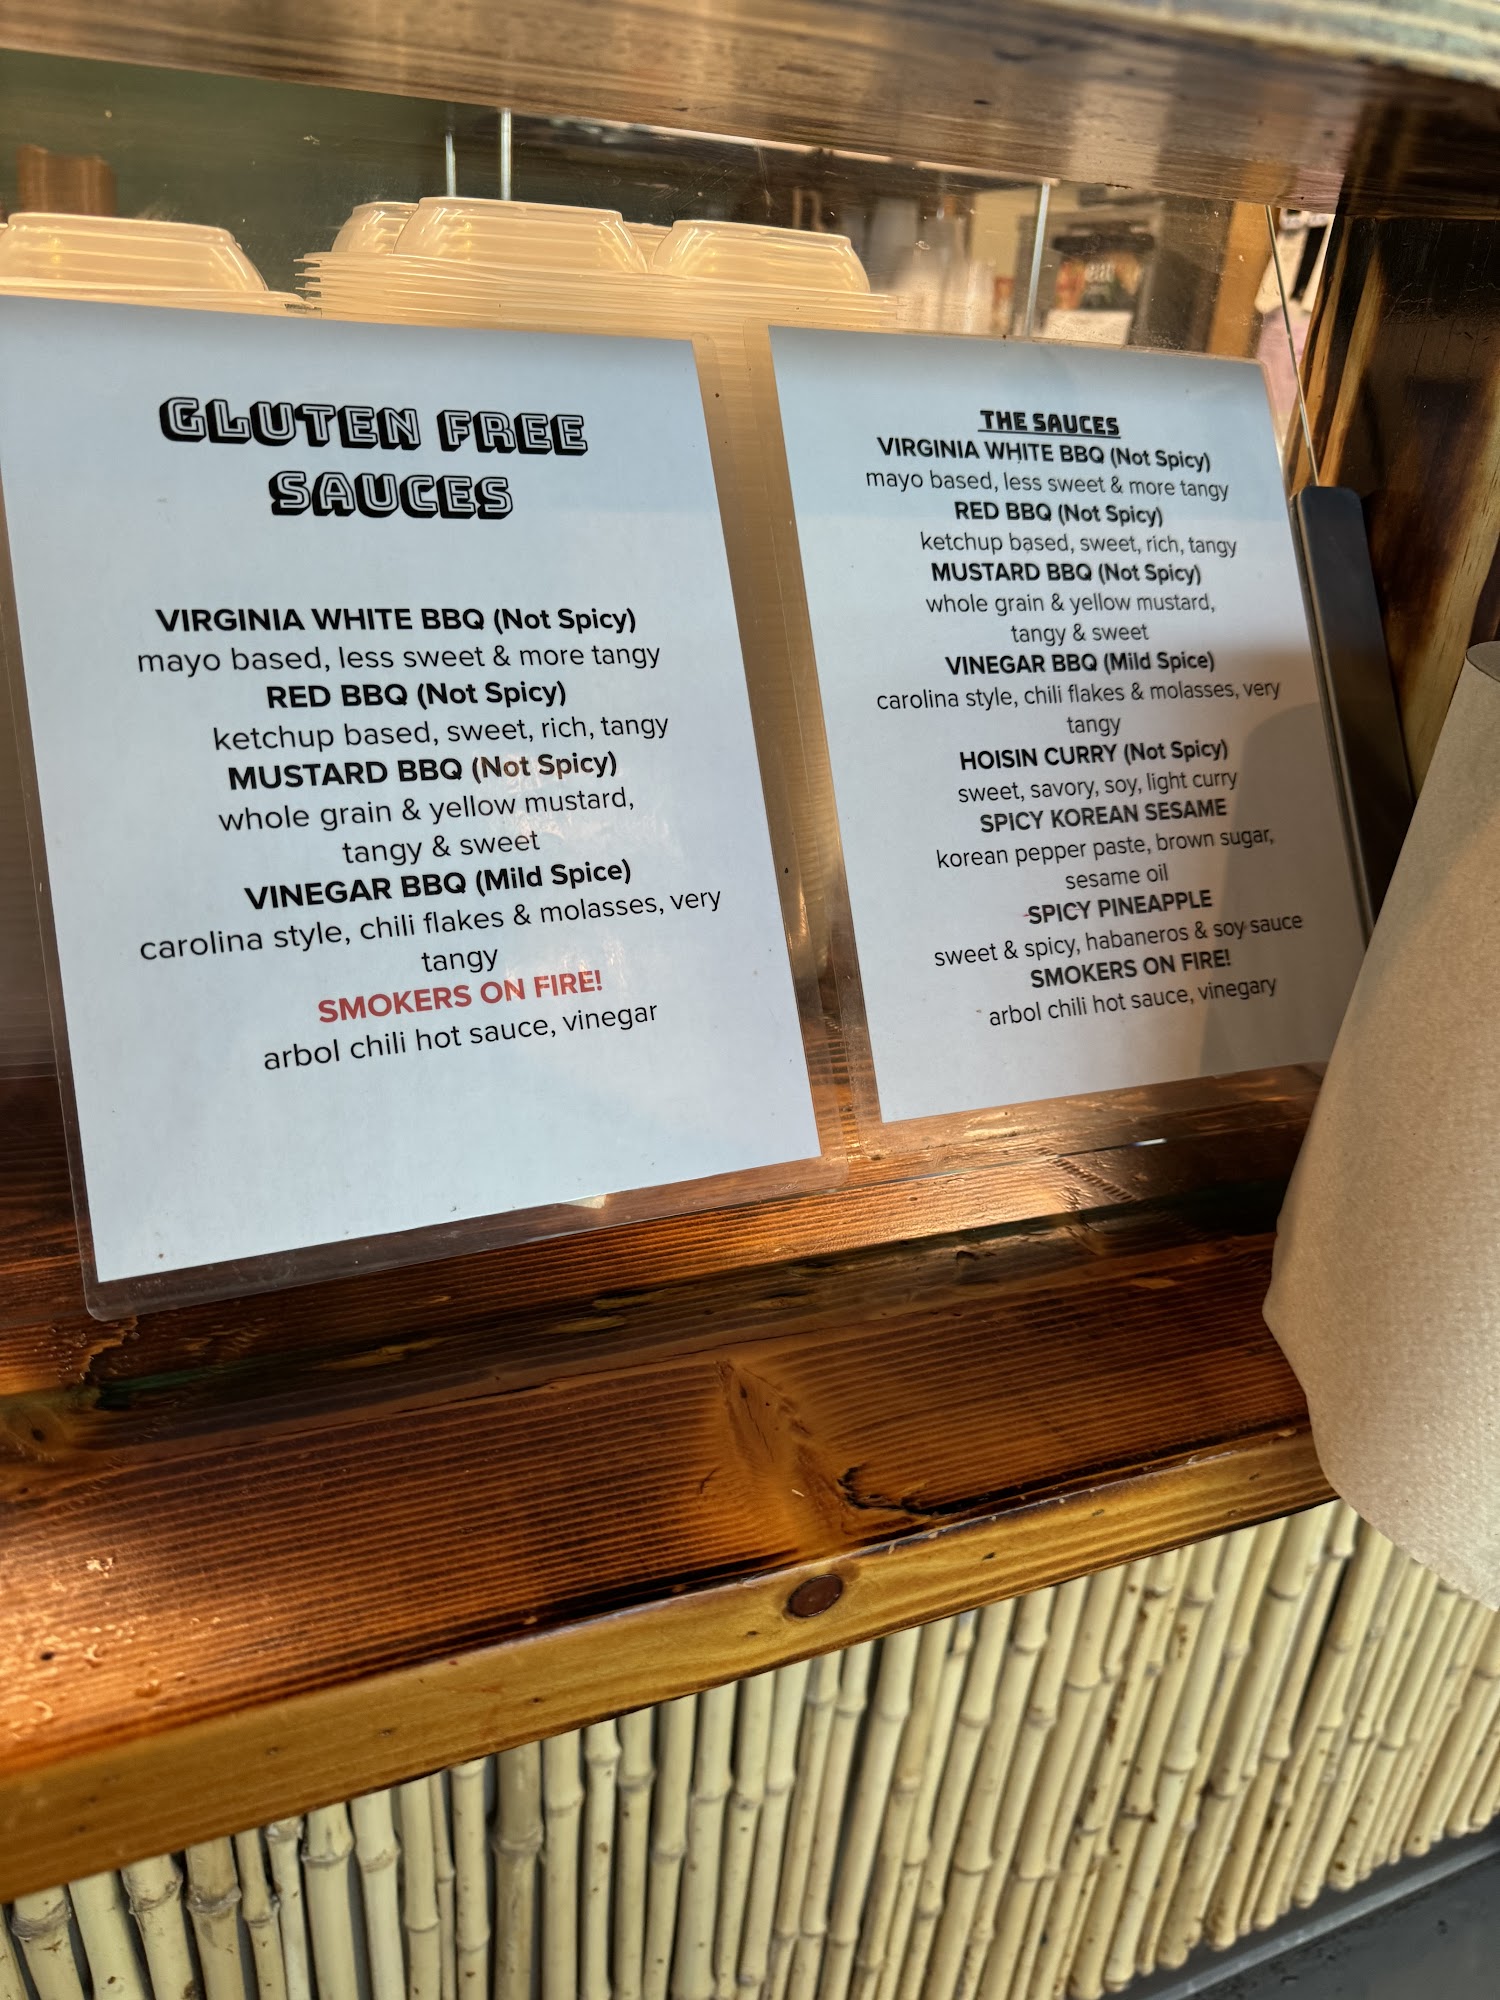 GLUTEN FREE
SAUCES
VIRGINIA WHITE BBQ (Not Spicy)
mayo based, less sweet & more tangy
RED BBQ (Not Spicy)
ketchup based, sweet, rich, tangy
MUSTARD BBQ (Not Spicy)
whole grain & yellow mustard,
tangy & sweet
VINEGAR BBQ (Mild Spice)
carolina style, chili flakes & molasses, very
tangy
SMOKERS ON FIRE!
arbol chili hot sauce, vinegar
THE SAUCES
VIRGINIA WHITE BBQ (Not Spicy)
mayo based, less sweet & more tangy
RED BBQ (Not Spicy)
ketchup based, sweet, rich, tangy
MUSTARD BBQ (Not Spicy)
whole grain & yellow mustard,
tangy & sweet
VINEGAR BBQ (Mild Spice)
carolina style, chili flakes & molasses, very
tangy
HOISIN CURRY (Not Spicy)
sweet, savory, soy, light curry
SPICY KOREAN SESAME
korean pepper paste, brown sugar,
sesame oil
SPICY PINEAPPLE
sweet & spicy, habaneros & soy sauce
SMOKERS ON FIRE!
arbol chili hot sauce, vinegary
eat